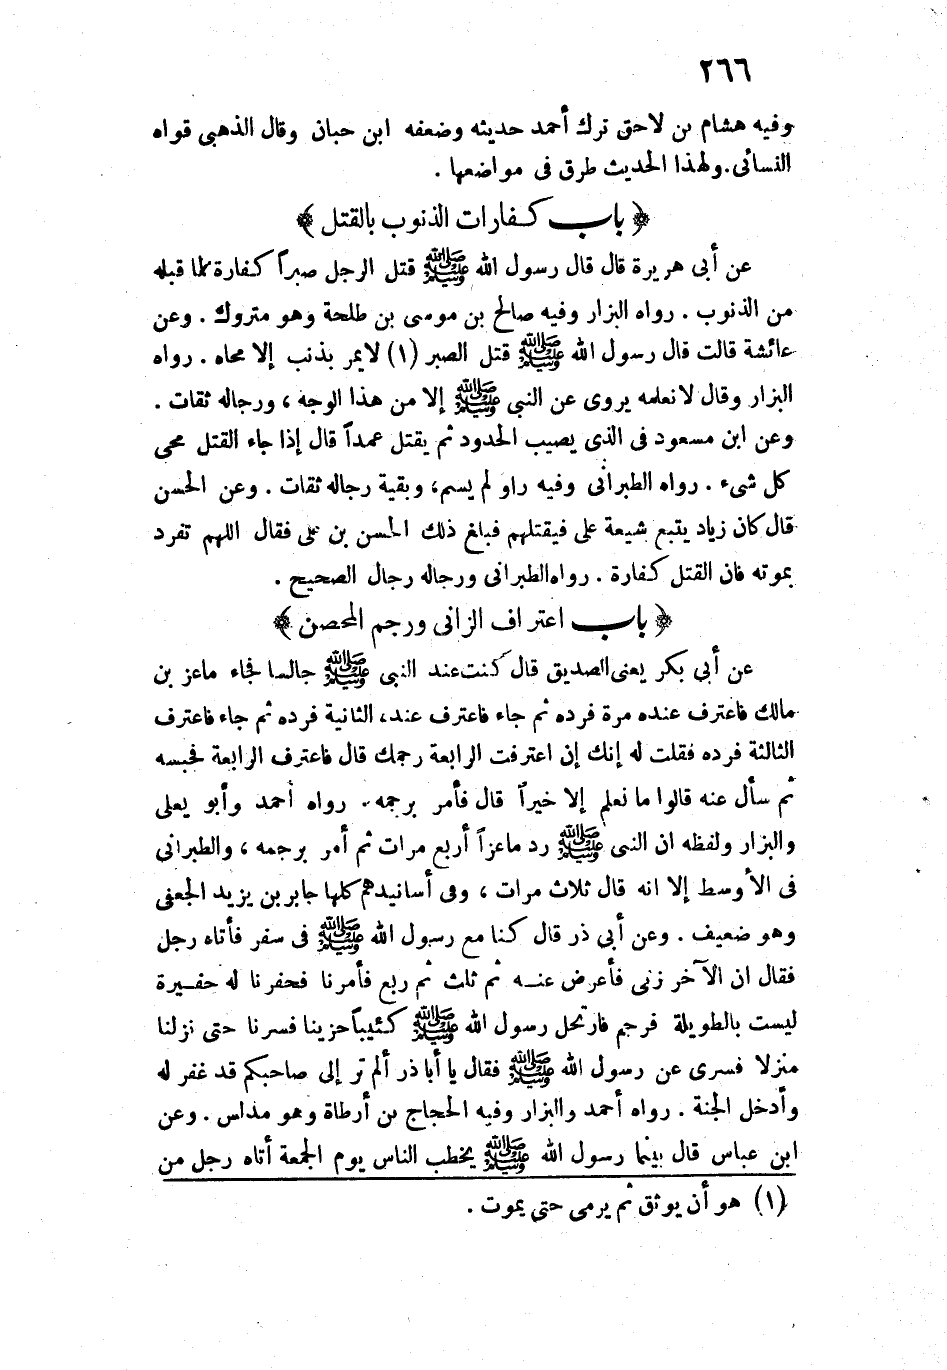 ٢٦٦
وفيه هشام بن لاحق ترك أحمد حديثه وضعفه ابن حبان وقال الذهبى قواه
النسائى . ولهذا الحديث طرق فى مواضعها .
﴿ باب كفارات الذنوب بالقتل ﴾
عن أبى هريرة قال قال رسول الله ﷺ قتل الرجل صبراً كفارة لما قبله
من الذنوب . رواه البزار وفيه صالح بن موسى بن طلحة وهو متروك . وعن
عائشة قالت قال رسول الله ﷺ قتل الصبر (١) لايمر بذنب إلا محاه . رواه
البزار وقال لا نعلمه يروى عن النبى ﷺ إلا من هذا الوجه ، ورجاله ثقات .
وعن ابن مسعود فى الذى يصيب الحدود ثم يقتل عمداً قال إذا جاء القتل محى
كل شىء . رواه الطبرانى وفيه راو لم يسم، وبقية رجاله ثقات . وعن الحسن
قال كان زياد يتبع شيعة على فيقتلهم فبلغ ذلك الحسن بن على فقال اللهم تفرد
بموته فان القتل كفارة . رواه الطبرانى ورجاله رجال الصحيح .
﴿ باب اعتراف الزانى ورجم المحصن ﴾
عن أبي بكر يعنى الصديق قال كنت عند النبى ﷺ جالسا فجاء ماعز بن
مالك فاعترف عنده مرة فرده ثم جاء فاعترف عنده الثانية فرده ثم جاء فاعترف
الثالثة فرده فقلت له إنك إن اعترفت الرابعة رجمك قال فاعترف الرابعة فحبسه
ثم سأل عنه قالوا ما نعلم إلا خيراً قال فأمر برجمه . رواه أحمد وأبو يعلى
والبزار ولفظه ان النبى ﷺ رد ماعزاً أربع مرات ثم أمر برجمه ، والطبرانى
فى الأوسط إلا انه قال ثلاث مرات ، وفى أسانيدهم كلها جابر بن يزيد الجعفى
وهو ضعيف . وعن أبي ذر قال كنا مع رسول الله ﷺ فى سفر فأتاه رجل
فقال ان الآخر زنى فأعرض عنه ثم ثلث ثم ربع فأمرنا فحفرنا له حفيرة
ليست بالطويلة فرجم فارتحل رسول الله ﷺ كئيباً حزينا فسرنا حتى نزلنا
منزلا فسرى عن رسول الله ﷺ فقال يا أبا ذر ألم تر إلى صاحبكم قد غفر له
وأدخل الجنة . رواه أحمد والبزار وفيه الحجاج بن أرطاة وهو مدلس . وعن
ابن عباس قال بينما رسول الله ﷺ يخطب الناس يوم الجمعة أتاه رجل من
(١) هو أن يوثق ثم يرمى حتى يموت .